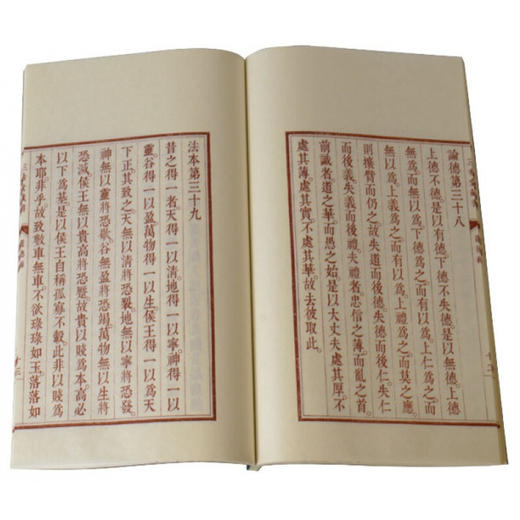 論德第三十八
上德不德是以有德下德不失德是以無德上德
無爲而無以爲下德爲之而有以爲上仁爲之而
無以爲上義爲之而有以爲上禮爲之而莫之應
則攘臂而仍之故失道而後德失德而後仁失仁
而後義失義而後禮夫禮者忠信之薄而亂之首
前識者道之華而愚之始是以大丈夫處其厚不
處其薄處其實不處其華故去彼取此
法本第三十九
昔之得一者天得一以清地得一以寧神得一以
靈谷得一以盈萬物得一以生侯王得一以爲天
下正其致之天無以清將恐裂地無以寧將恐發
神無以靈將恐歇谷無以盈將恐竭萬物無以生將
恐滅侯王無以貴高將恐蹶故貴以賤爲本高必
以下爲基是以侯王自稱孤寡不轂此非以賤爲
本耶非乎故致數車無車不欲琭琭如玉落落如